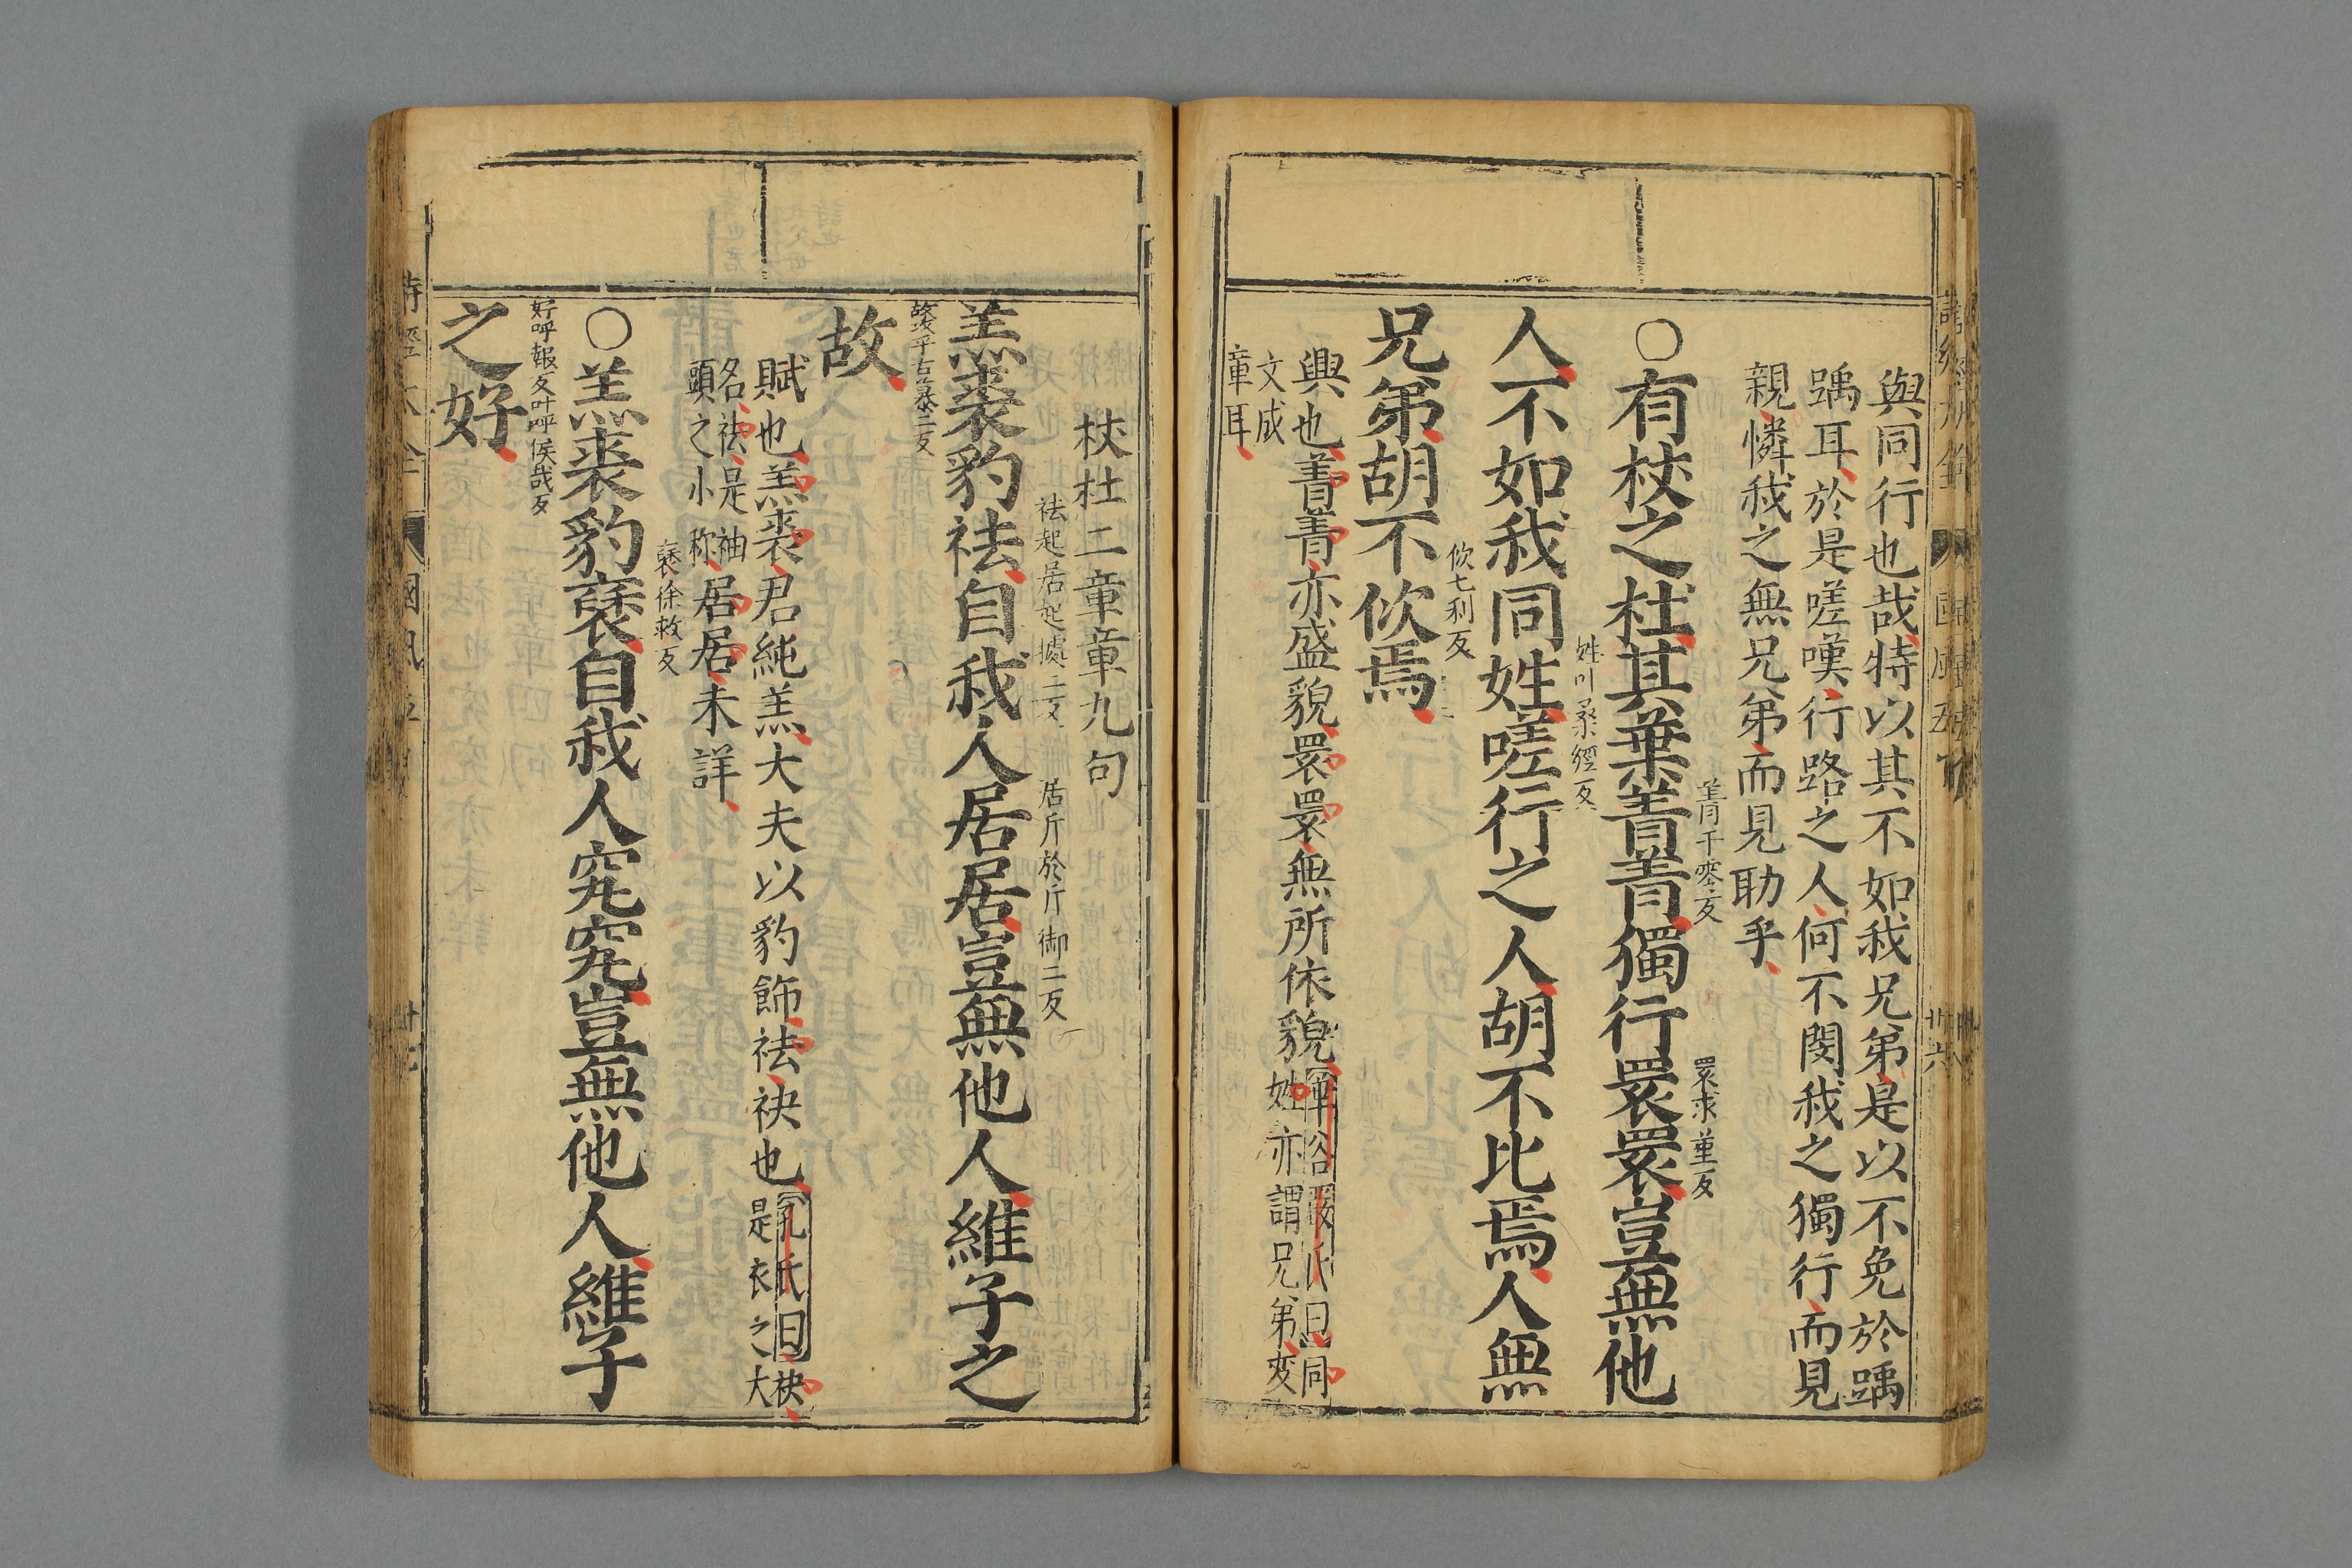 與同行也哉特以其不如我兄弟是以不免於踽
踽耳於是嗟嘆行路之人何不閔我之獨行而見
親憐我之無兄弟而見助乎
菁子零反
睘求菫反
○有杕之杜其葉菁菁獨行睘睘豈無他
姓叶桑經反
人不如我同姓嗟行之人胡不比焉人無
佽七利反
兄弟胡不佽焉
興也菁菁亦盛貌睘睘無所依貌
嚴氏曰同
姓亦謂兄弟変
文成
章耳
杕杜二章章九句
祛起居起據二反
居斤於斤御二反
羔裘豹祛自我人居居豈無他人維子之
故攻乎古慕二反
故
賦也羔裘君純羔大夫以豹飾祛袂也
孔氏曰袂
是衣之大
名祛是袖
頭之小称
居居未詳
褎徐救反
○羔裘豹褎自我人究究豈無他人維子
好呼報反叶呼侯反
之好